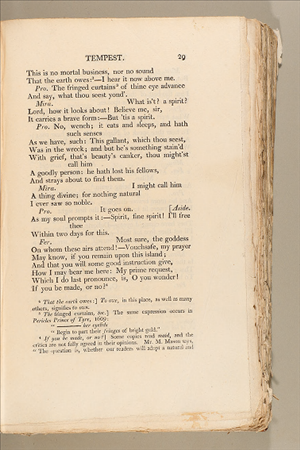 TEMPEST. 29
This is no mortal business, nor no sound
That the earth owes:²—I hear it now above me.
Pro. The fringed curtains³ of thine eye advance
And say, what thou seest yond'.
Mira. What is't? a spirit?
Lord, how it looks about! Believe me, sir,
It carries a brave form:—But 'tis a spirit.
Pro. No, wench; it eats and sleeps, and hath
such senses
As we have, such: This gallant, which thou seest,
Was in the wreck; and but he's something stain'd
With grief, that's beauty's canker, thou might'st
call him
A goodly person: he hath lost his fellows,
And strays about to find them.
Mira. I might call him
A thing divine; for nothing natural
I ever saw so noble.
Pro. It goes on, [Aside.
As my soul prompts it:—Spirit, fine spirit! I'll free
thee
Within two days for this.
Fer. Most sure, the goddess
On whom these airs attend!—Vouchsafe, my prayer
May know, if you remain upon this island;
And that you will some good instruction give,
How I may bear me here: My prime request,
Which I do last pronounce, is, O you wonder!
If you be made, or no?⁴
² That the earth owes:] To owe, in this place, as well as many
others, signifies to own.
³ The fringed curtains, &c.] The same expression occurs in
Pericles Prince of Tyre, 1609:
"——— her eyelids
" Begin to part their fringes of bright gold."
⁴ If you be made, or no?] Some copies read maid, and the
critics are not fully agreed in their opinions. Mr. M. Mason says,
" The question is, whether our readers will adopt a natural and